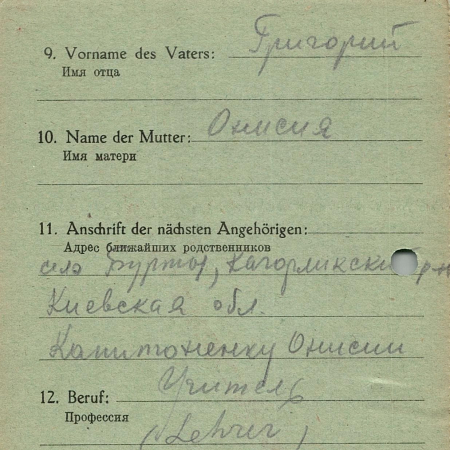 9. Vorname des Vaters: Григорий
Имя отца
10. Name der Mutter: Онисия
Имя матери
11. Anschrift der nächsten Angehörigen:
Адрес ближайших родственников
село Бурты, Кагорликский р-н
Киевская обл.
Капитоненку Онисии
12. Beruf: Учитель
Профессия
(Lehrer)